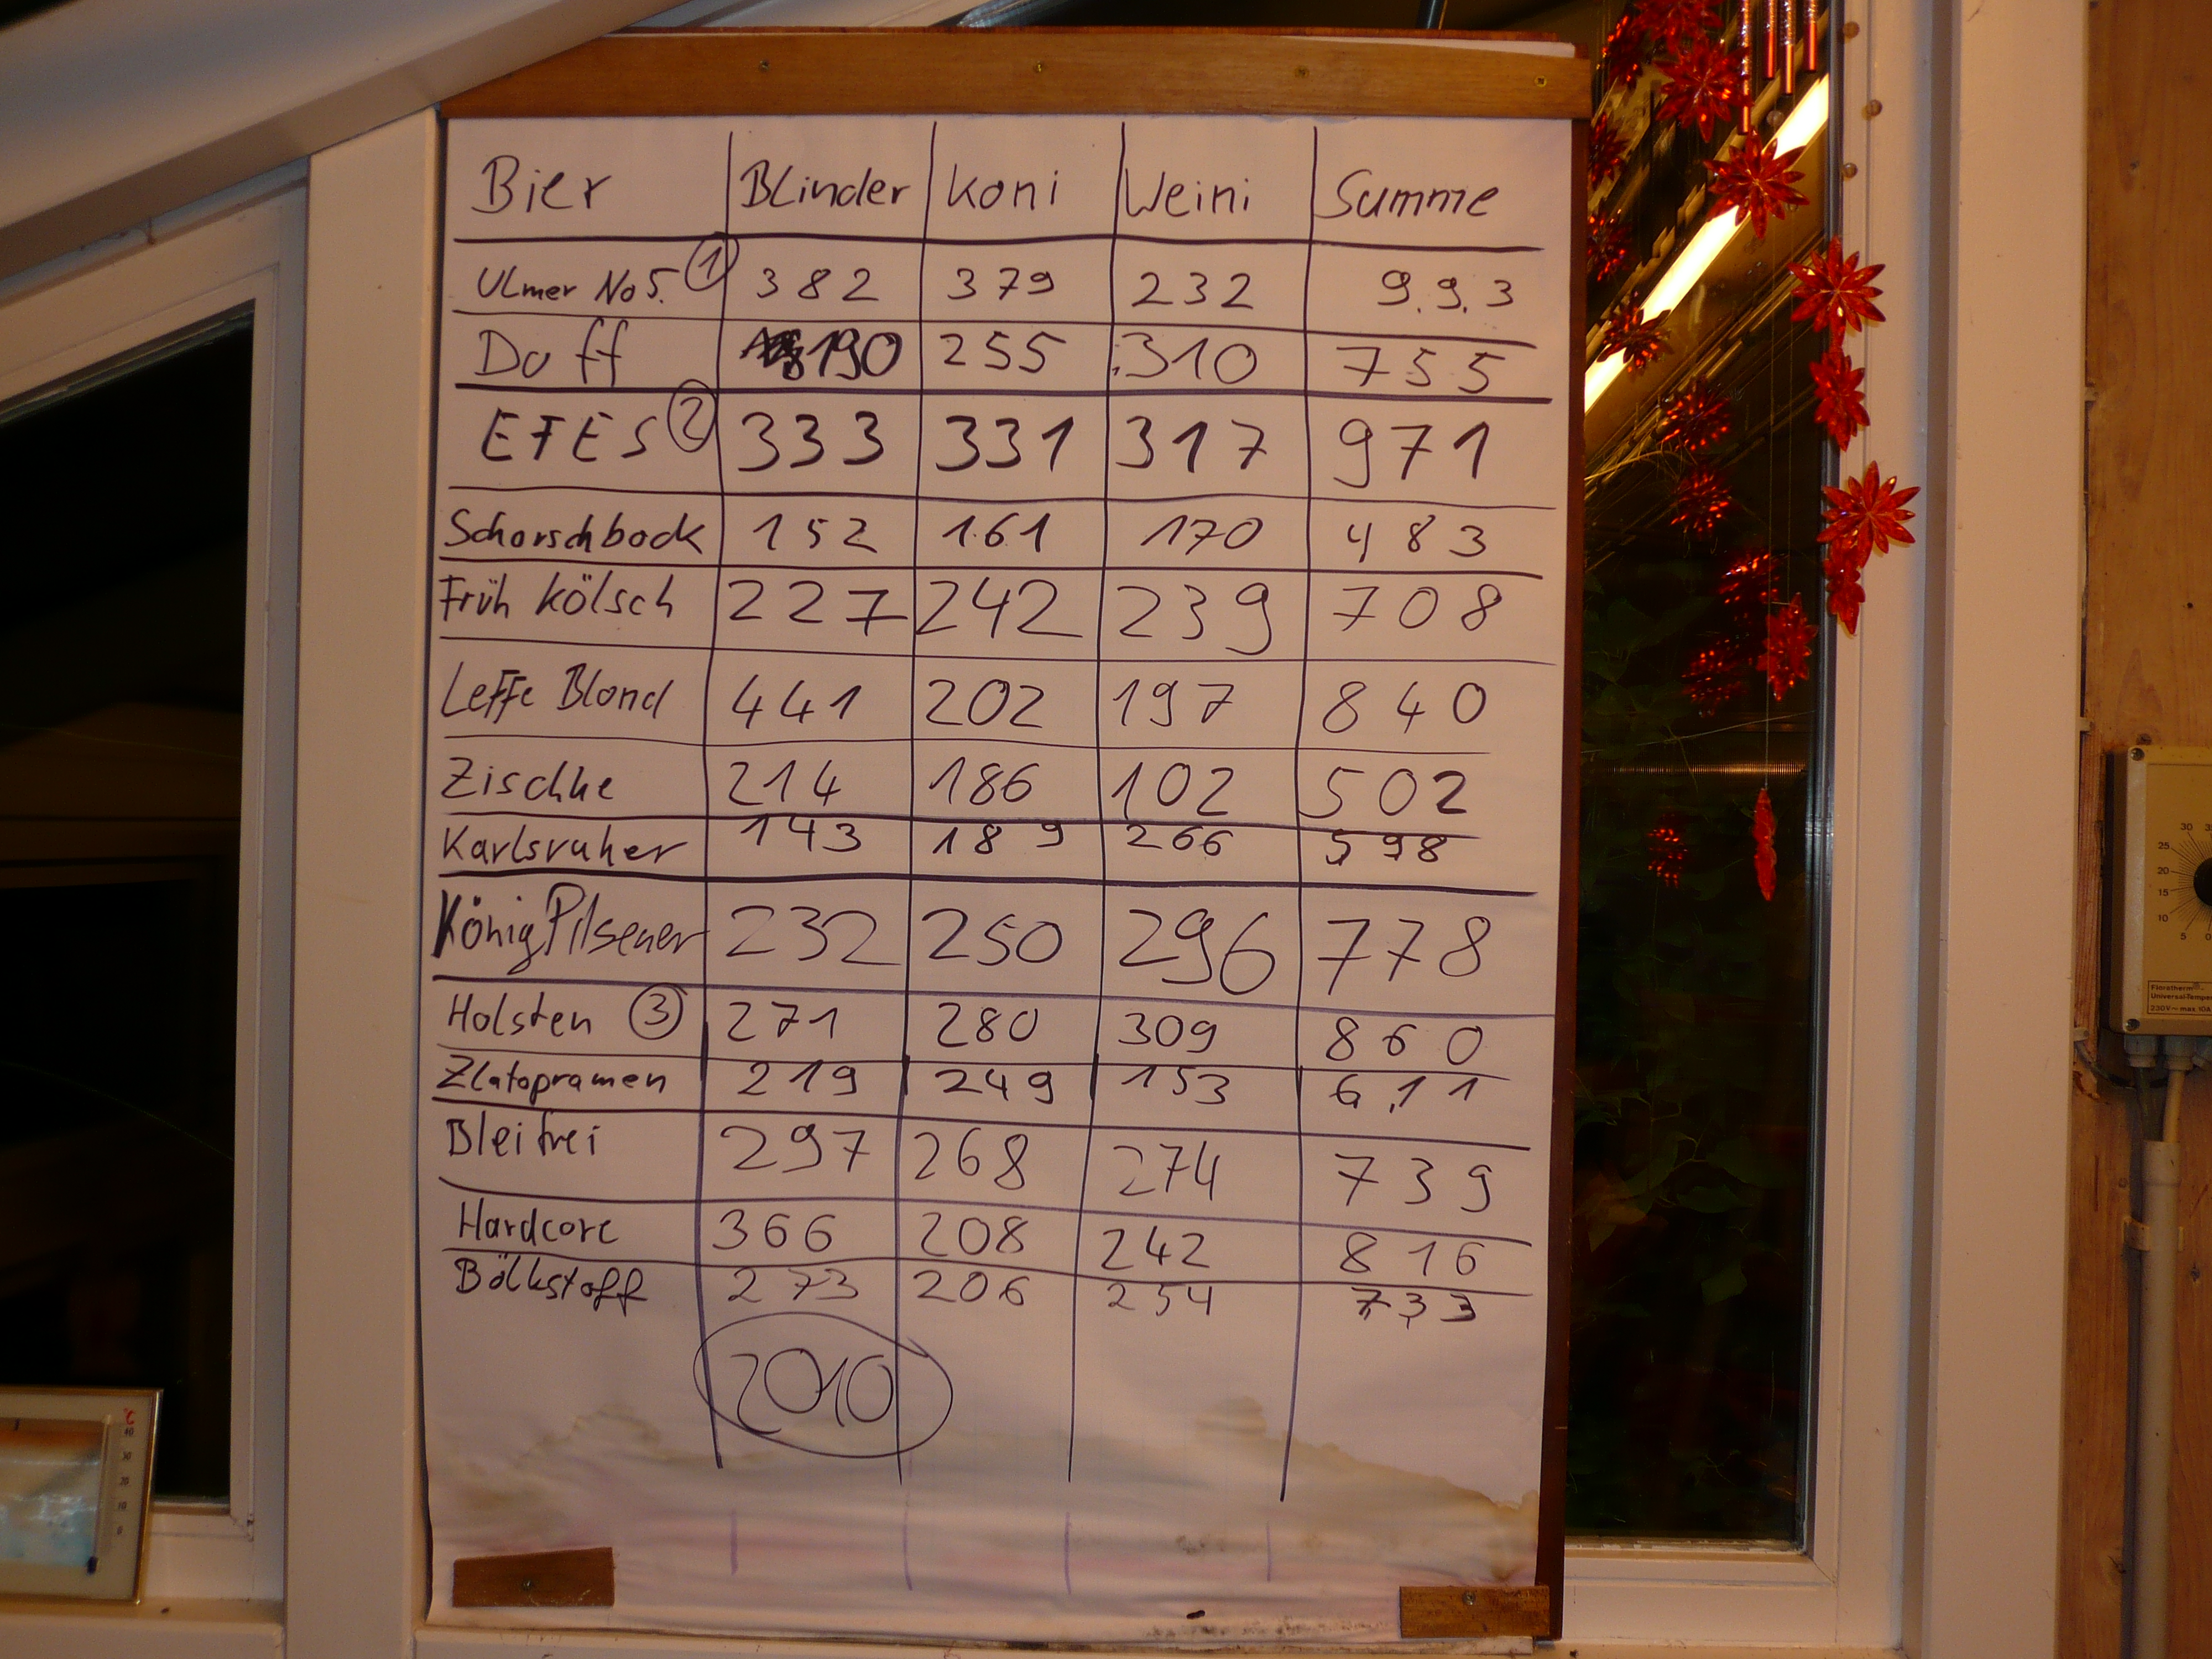 Bier Blinder Koni Weini Summe
Ulmer No 5. 1 382 379 232 9.9.3
Duff 190 255 310 755
EFES 2 333 331 317 971
Schorschbock 152 161 170 483
Früh Kölsch 227 242 239 708
Leffe Blond 441 202 197 840
Zischke 214 186 102 502
Karlsruher 143 189 266 598
König Pilsener 232 250 296 778
Holsten 3 271 280 309 860
Zlatopramen 219 249 153 611
Bleifrei 297 268 274 739
Hardcore 366 208 242 816
Bölkstoff 273 206 254 733
2010
°C
40
30
20
10
0
30
25
20
15
10
5
Floratherm
Universal-Temper
230V~ max.10A